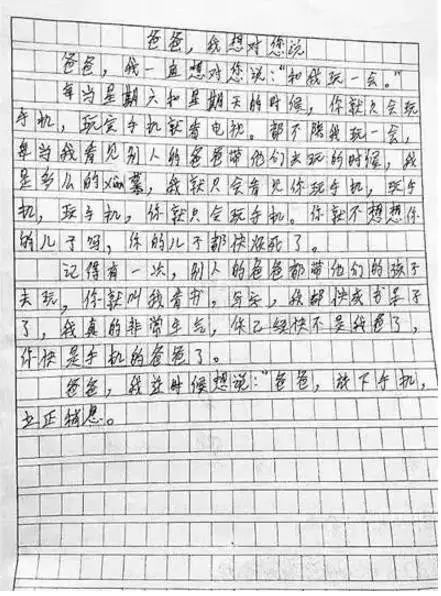 爸爸，我想对您说
爸爸，我一直想对您说："和我玩一会。"
每当星期六和星期天的时候，你就只会玩
手机，玩完手机就看电视。都不陪我玩一会，
每当我看见别人的爸爸带他们去玩的时候，我
是多么的xian慕，我就只会看见你玩手机，玩手
机，玩手机，你就只会玩手机。你就不想想你
的儿子吗，你的儿子都快烦死了。
记得有一次，别人的爸爸都带他们的孩子
去玩，你就叫我看书。写字，我都快成书呆子
了，我真的非常生气，你已经快不是我爸了，
你快是手机的爸爸了。
爸爸，我这时候想说："爸爸，放下手机，
立正稍息。